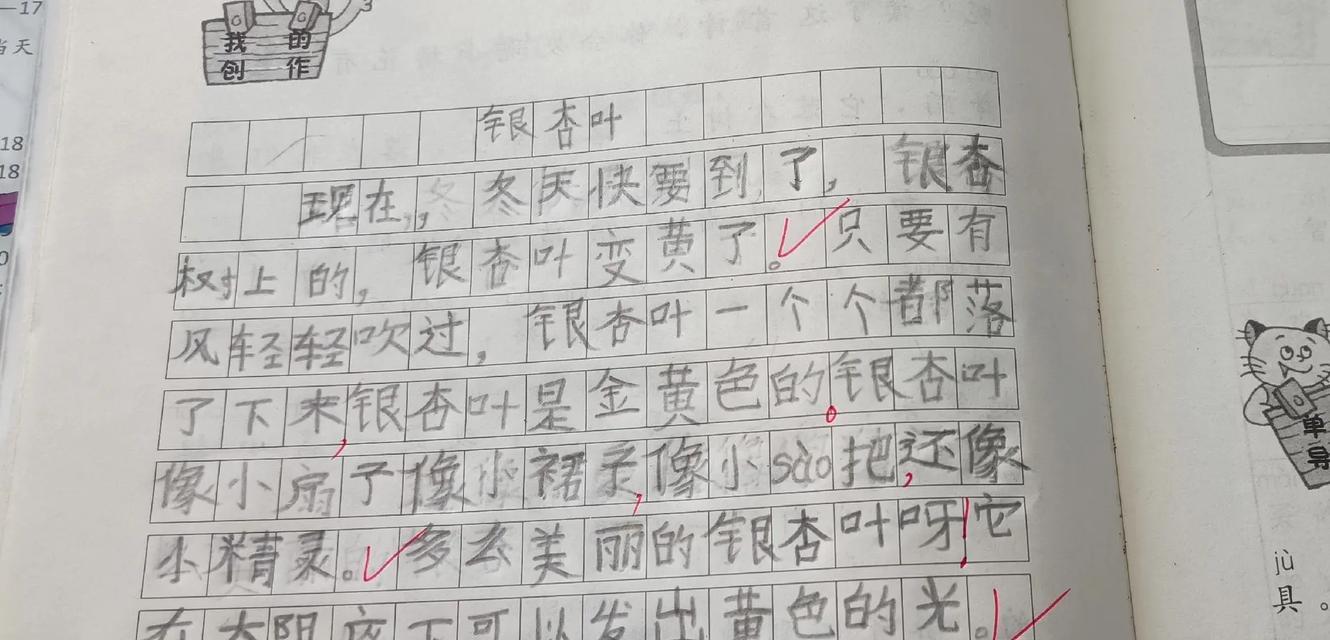 17
当天
18
18
我的
创作
银杏叶
现在,冬天快要到了,银杏
树上的,银杏叶变黄了。只要有
风轻轻吹过,银杏叶一个个都落
了下来,银杏叶是金黄色的。银杏叶
像小扇子像小裙子,像小sào把,还像
小精灵。多么美丽的银杏叶呀!它
在太阳底下可以发出黄色的光。
单
导
jù
具。